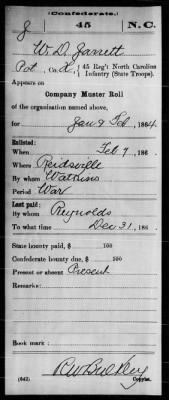 (Confederate.)
J 45 N.C.
W. D. Jarrett
Pvt, Co. , 45 Reg't North Carolina
Infantry (State Troops)
Appears on
Company Muster Roll
of the organization named above,
for Jan & Feb, 1864.
Enlisted:
When Feb 7, 186 .
Where Reidsville
By whom Watkins
Period War
Last paid:
By whom Reynolds
To what time Dec 31, 186 .
State bounty paid, $ 100
Confederate bounty due, $ 100
Present or absent Present
Remarks:
Book mark:
R W Bulkley
(642) Copyist.